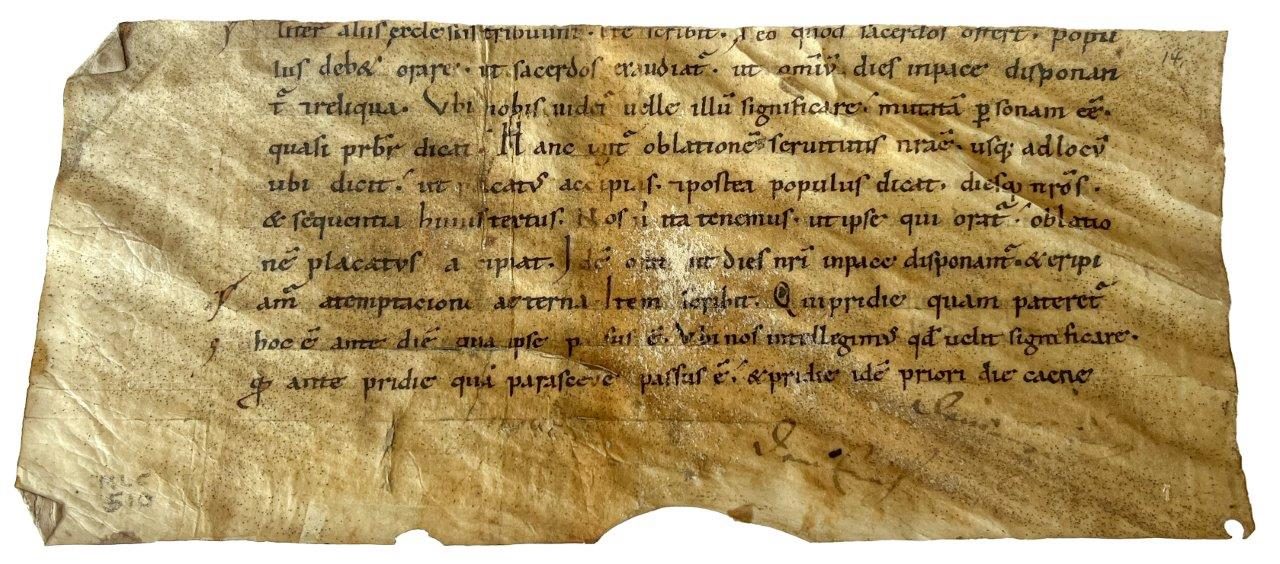 liter alius ęcclesiis tribuunt. Ite scribit. Eo quod sacerdos offert. popu
14
lus deb& orare. ut sacerdos exaudiat᷑. ut omīū dies inpace disponan
t᷑ ⁊reliqua. Vbi nobis uidet᷑ uelle illū significare. mutatā ꝑsonam eē.
quasi prb̄r dicat. Hanc igit᷑ oblationē seruitutis nr̄ae. usq; ad locū
ubi dicit. ut placatus accipias. ⁊postea populus dicat. diesq; nr̄os.
& sequentia huius textus. Nos ita tenemus. ut ipse qui orat. oblatio
nē placatus accipiat. Idē orat ut dies nr̄i inpace disponant᷑. & eripi
am᷑ atemptacione aeterna Item scribit. Qui pridie quam pateret᷑
hoc ē ante diē quā ipse passus ē. Vbi nos intellegimus qd̄ uelit significare.
ꝙ ante pridie quā parasceue passus ē. & pridie idē priori die caene
MLC
510